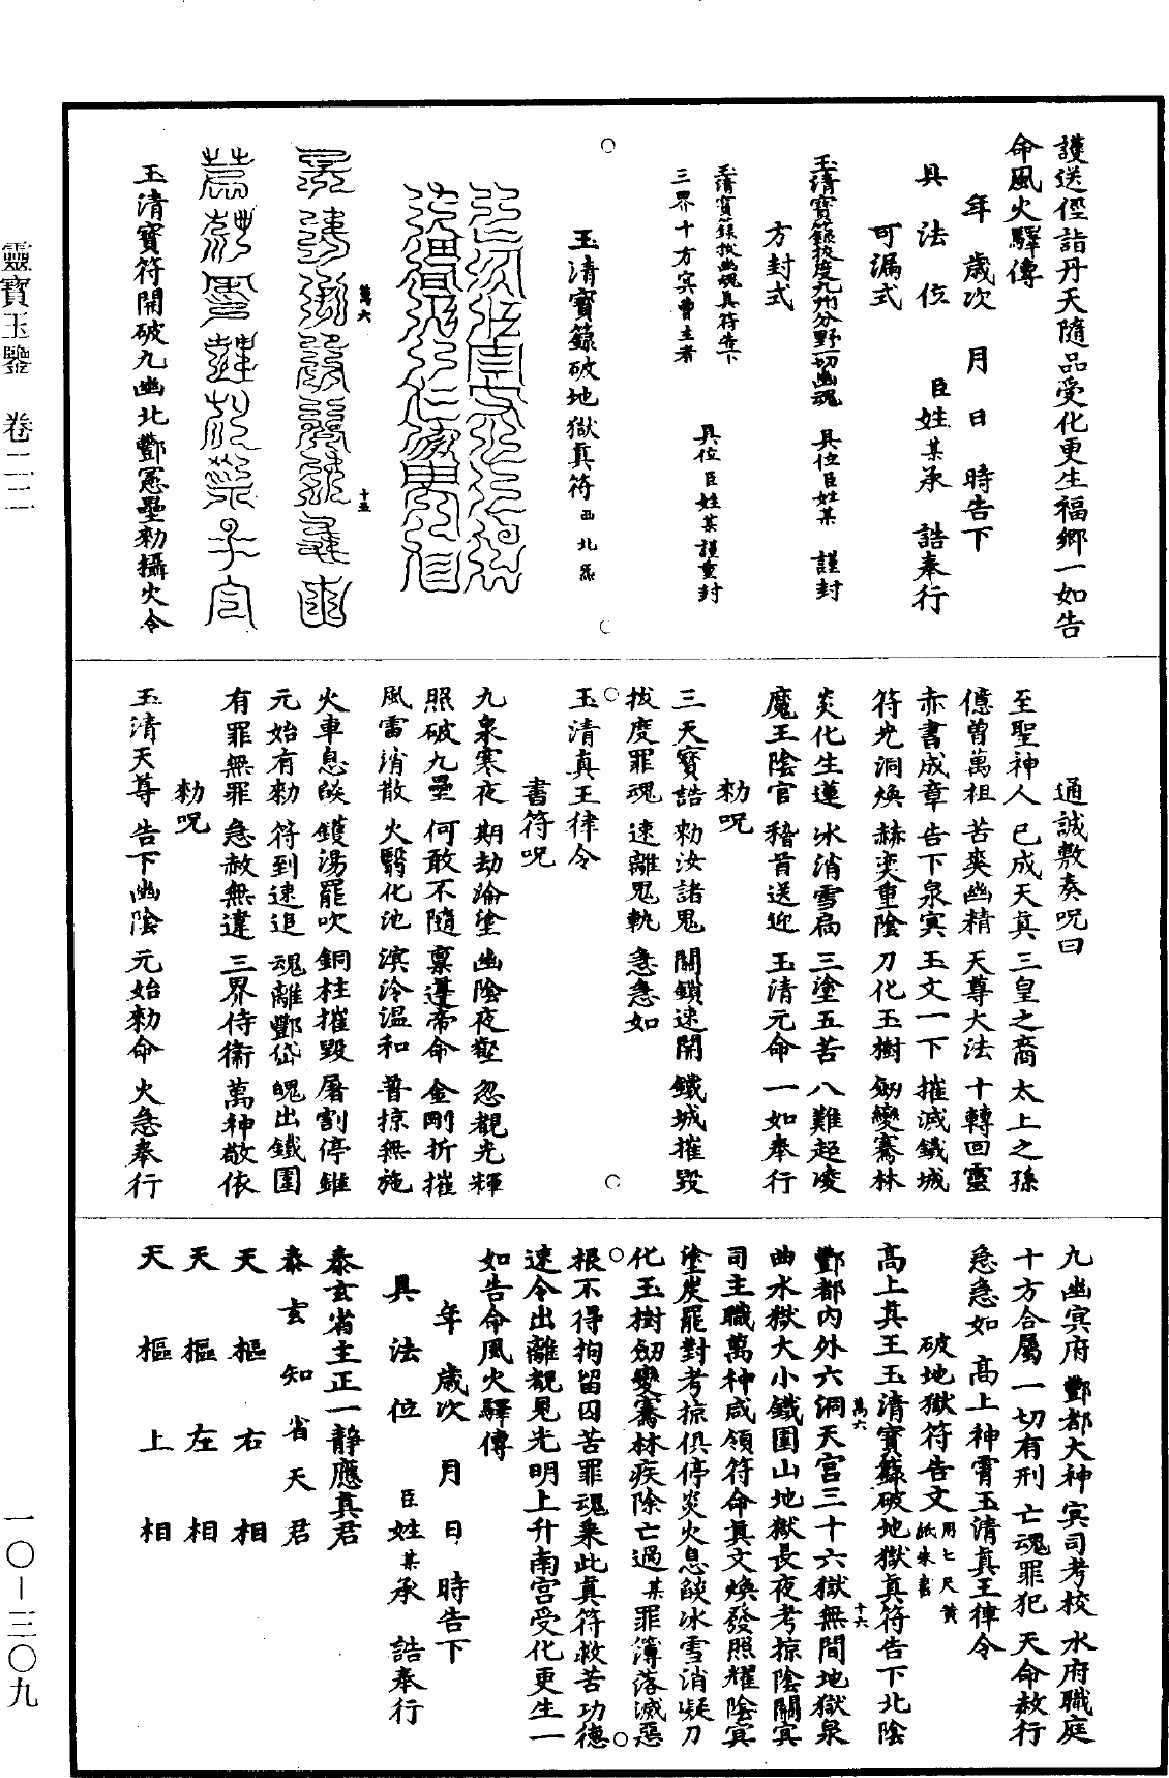 護送徑詣丹天隨品受化更生福鄉一如告
命風火驛傳
年 歲次 月 日 時告下
具 法 位 臣姓某承 誥奉行
可漏式
玉清寶籙拔度九州分野一切幽魂 具位臣姓某 謹封
方封式
玉清寶籙拔幽魂真符告下
三界十方冥曹主者 具位臣姓某謹重封
玉清寶籙破地獄真符
萬六
十五
玉清寶符開破九幽北酆愿壘勑攝火令
通誠敷奏呪曰
至聖神人 已成天真 三皇之裔 太上之孫
億曾萬祖 苦爽幽精 天尊大法 十轉回靈
赤書成章 告下泉冥 玉文一下 摧滅鐵城
符光洞煥 赫奕重陰 刀化玉樹 劒變騫林
炎化生蓮 冰消雪扃 三塗五苦 八難超凌
魔王陰官 稽首送迎 玉清元命 一如奉行
勑呪
三天寶誥 勑汝諸鬼 關鎖速開 鐵城摧毀
拔度罪魂 速離鬼軌 急急如
玉清真王律令
書符呪
九泉寒夜 期劫淪塗 幽陰夜壑 忽覩光輝
照破九壘 何敢不隨 稟遵帝命 金剛折摧
風雷消散 火翳化池 溟泠温和 普掠無施
火車息燄 鑊湯罷吹 銅柱摧毀 屠割停錐
元始有勑 符到速追 魂離酆岱 魄出鐵圍
有罪無罪 急赦無違 三界侍衛 萬神敬依
勑呪
玉清天尊 告下幽陰 元始勑命 火急奉行
九幽冥府 酆都大神 冥司考校 水府職庭
十方合屬 一切有刑 亡魂罪犯 天命赦行
急急如 高上神霄玉清真王律令
破地獄符告文用七尺黃紙朱書
高上真王玉清寶籙破地獄真符告下北陰
酆都內外六洞天宮三十六獄無間地獄泉
曲水獄大小鐵圍山地獄長夜考掠陰關冥
司主職萬神咸領符命真文煥發照耀陰冥
塗炭罷對考掠俱停炎火息燄冰雪消凝刀
化玉樹劒變騫林疾除亡過某罪簿落滅惡
根不得拘留囚苦罪魂乘此真符救苦功德
速令出離覩見光明上升南宫受化更生一
如告命風火驛傳
年 歲次 月 日 時告下
具 法 位 臣姓某承 誥奉行
泰玄省主正一靜應真君
泰玄知省天君
天樞右相
天樞左相
天樞上相
萬六
十六
靈寶玉鑒 卷二二
一〇—三〇九